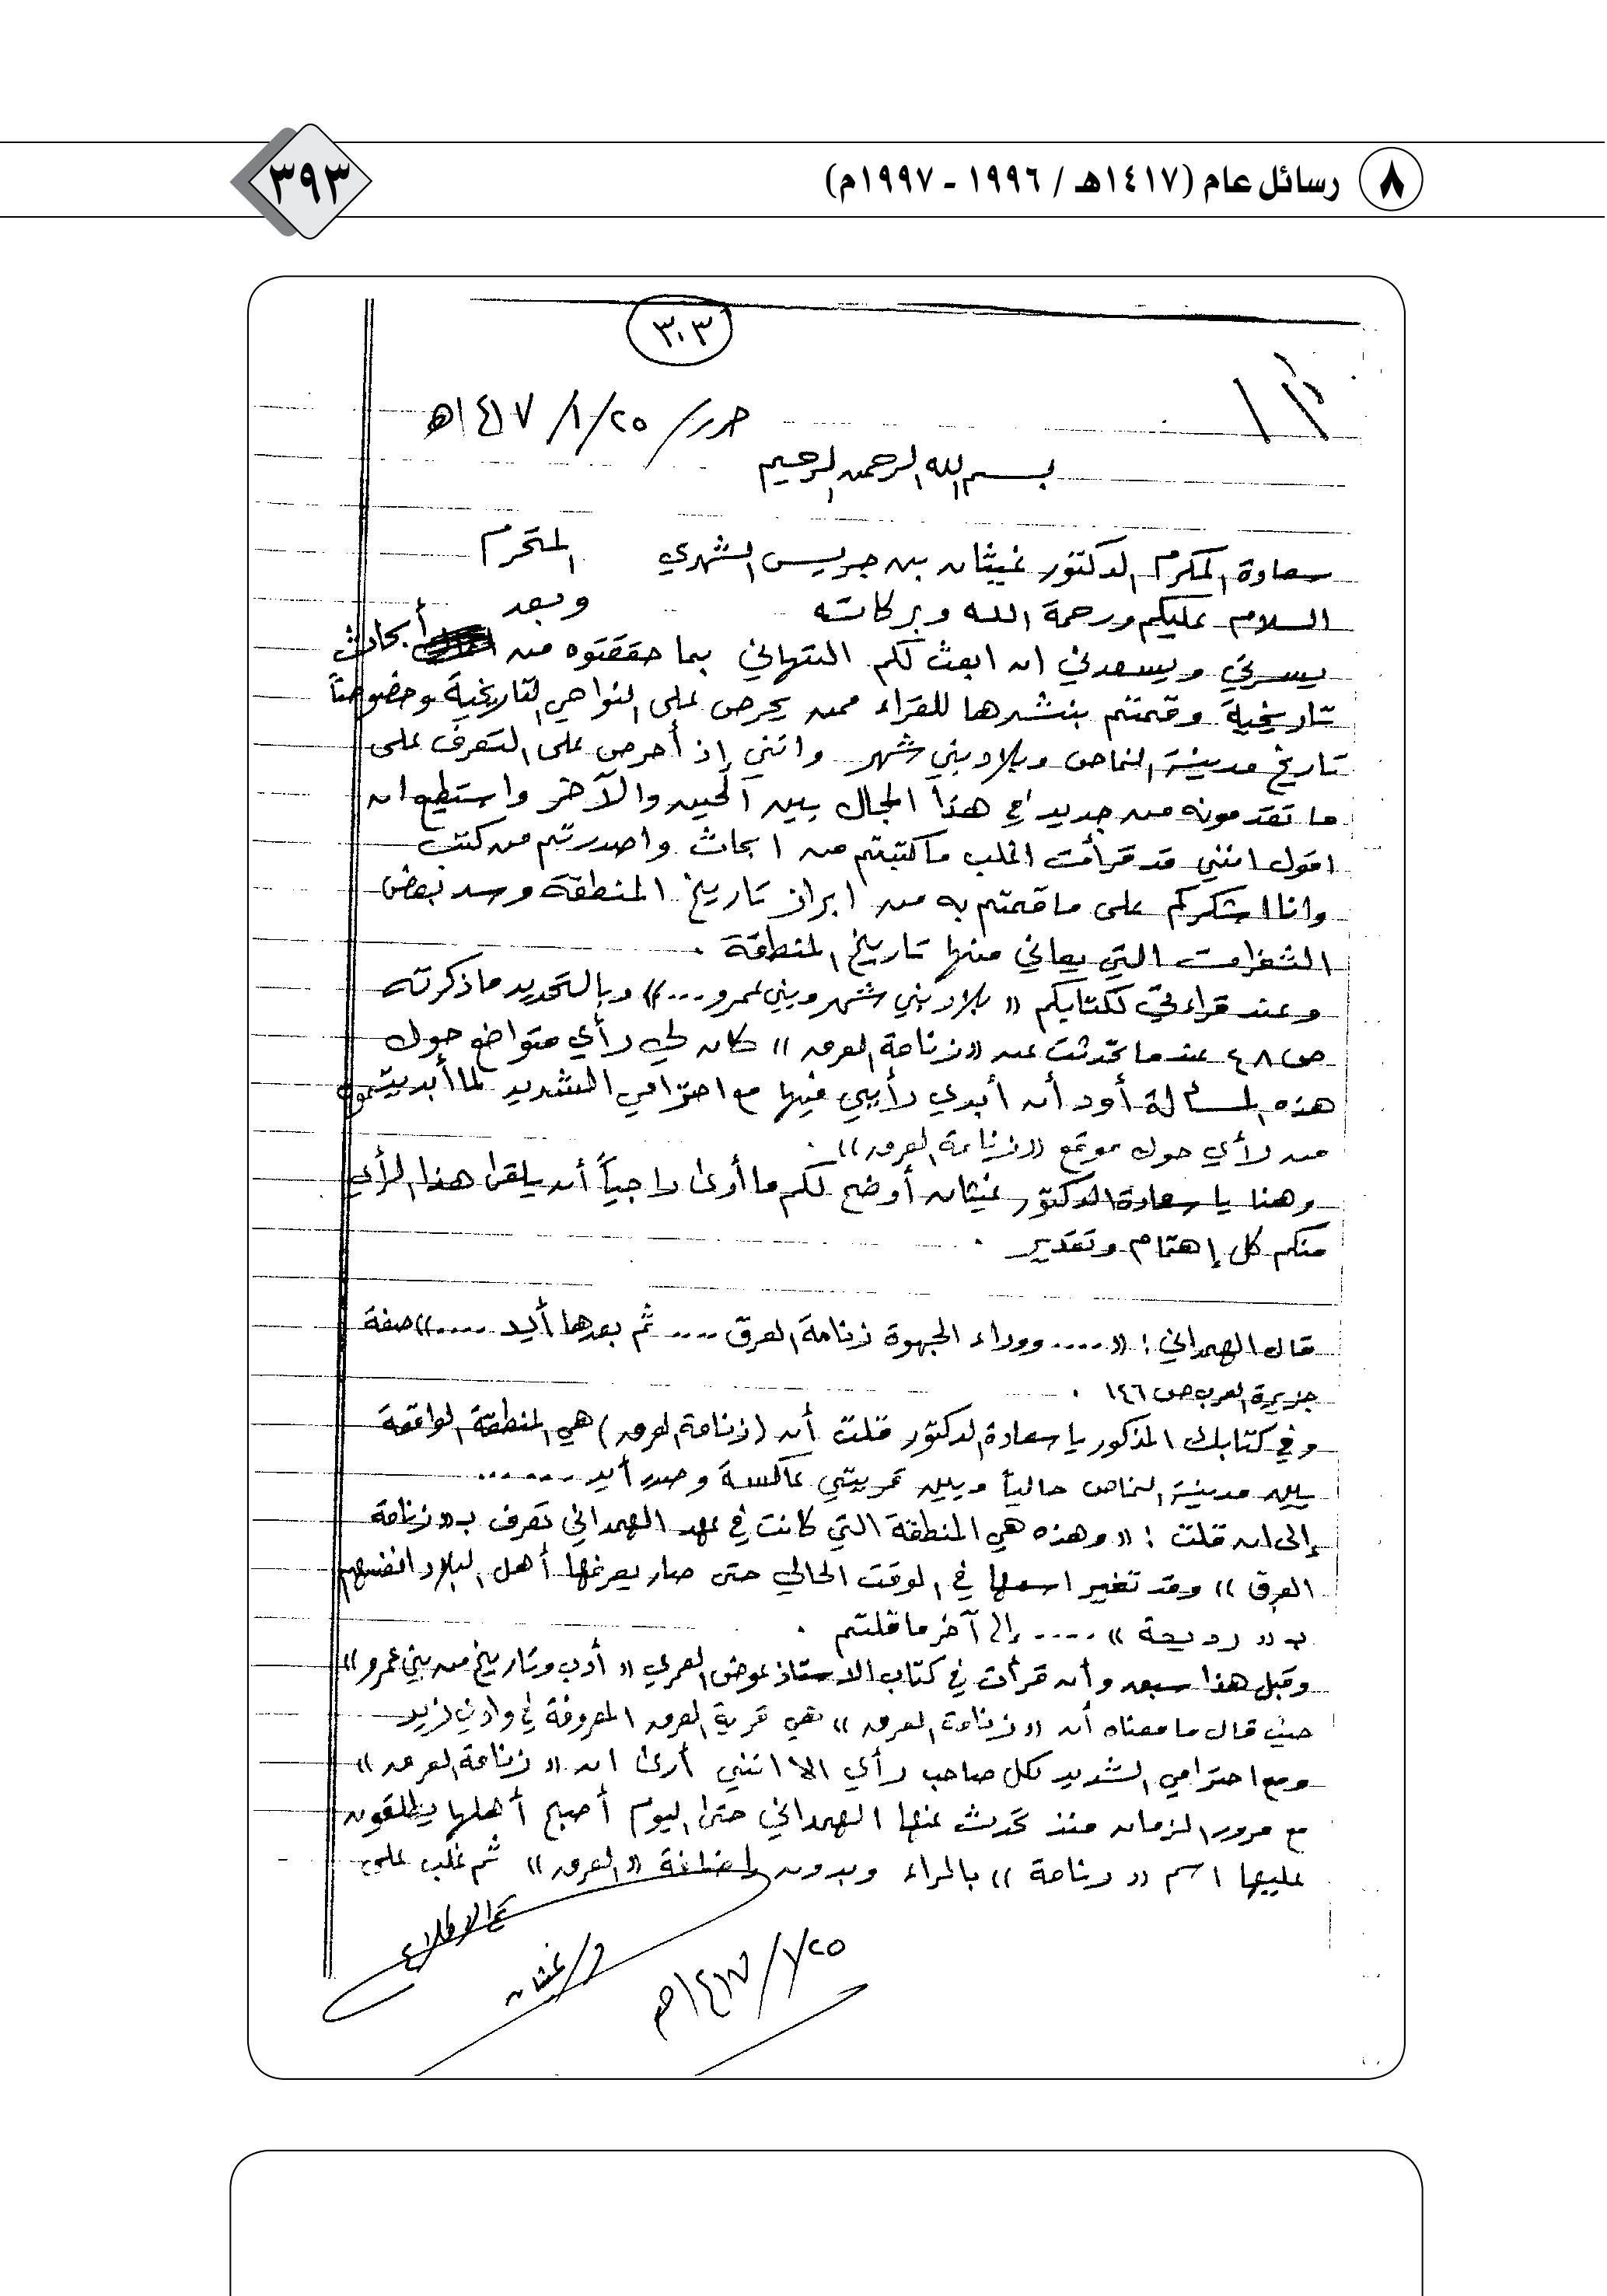 ٨ رسائل عام (١٤١٧هـ / ١٩٩٦ - ١٩٩٧م)
٣٩٣
٣٠٣
حرر / ٢٥ / ١ / ١٤١٧هـ
بسم الله الرحمن الرحيم
سعادة المكرم الدكتور غيثان بن جريس الشهري المحترم
السلام عليكم ورحمة الله وبركاته وبعد
يسرني ويسعدني ان ابعث لكم التهاني بما حققتوه من أبحاث
تاريخية وقمتم بنشرها للقراء ممن يحرص على النواحي التاريخية وخصوصاً
تاريخ مدينة النماص وبلاد بني شهر وانني إذ أحرص على التعرف على
ما تقدمونه من جديد في هذا المجال بين الحين والآخر واستطيع ان
اقول انني قد قرأت اغلب ما كتبتم من ابحاث واصدرتم من كتب
وانا اشكركم على ما قمتم به من ابراز تاريخ المنطقة وسد بعض
الثغرات التي يعاني منها تاريخ المنطقة .
وعند قراءتي لكتابكم « بلاد بني شهر وبني عمرو ... » وبالتحديد ما ذكرته
ص ٤٨ عند ما تحدثت عن « زنامة العرق » كان لي رأي متواضع حول
هذه المسألة أود أن أبدي رأيي فيها مع احترامي الشديد لما أبديتموه
من رأي حول موقع « زنامة العرق » .
وهنا يا سعادة الدكتور غيثان أوضح لكم ما أرى راجياً أن يلقى هذا الرأي
منكم كل إهتمام وتقدير .
قال الهمداني : « .... ووراء الجهوة زنامة العرق .... ثم بعدها أيد .... » صفة
جزيرة العرب ص ١٤٦ .
وفي كتابك المذكور يا سعادة الدكتور قلت أن (زنامة العرق) هي المنطقة الواقعة
بين مدينة النماص حالياً وبين قريتي عاكسة وصدر أيد ......
إلى ان قلت : « وهذه هي المنطقة التي كانت في عهد الهمداني تعرف بـ « زنامة
العرق » وقد تغير اسمها في الوقت الحالي حتى صار يعرفها أهل البلاد انفسهم
بـ « رديحة » .... إلى آخر ما قلتم .
وقبل هذا سبق وأن قرأت في كتاب الاستاذ عوض العمري « أدب وتاريخ من بني عمرو »
حيث قال ما معناه أن « زنامة العرق » هي قرية العرق المعروفة في وادي زيد
ومع احترامي الشديد لكل صاحب رأي الا انني أرى ان « زنامة العرق »
مع مرور الزمان منذ تحدث عنها الهمداني حتى اليوم أصبح أهلها يطلقون
عليها اسم « رنامة » بالراء وبدون إضافة « العرق » ثم غلب على
تم الاطلاع
د / غيثان
٢٥ / ١ / ١٤١٧هـ